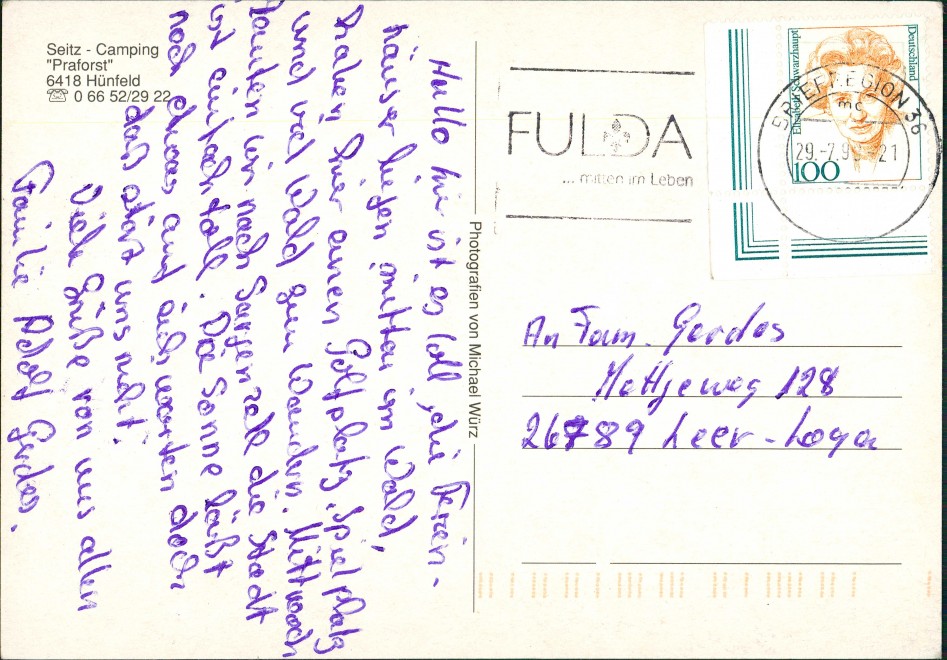 Seitz - Camping
"Praforst"
6418 Hünfeld
☏ 0 66 52/29 22
Hallo hier ist es toll, die Ferien-
häuser liegen mitten im Wald,
haben hier einen Golfplatz, Spielplatz
und viel Wald zum Wandern. Mittwoch
nach die Stadt
ist einfach toll. Die Sonne läßt
noch etwas auf sich warten doch
daß stört uns nicht.
Viele Grüße von uns allen
Familie Adolf Gerdes.
Photografien von Michael Würz
FULDA
... mitten im Leben
BRIEFREGION 36
mc
29.-7.9 -21
Elisabeth Schwarzhaupt
Deutschland
100
An Fam. Gerdes
Hettjeweg 128
26789 Leer-Loga